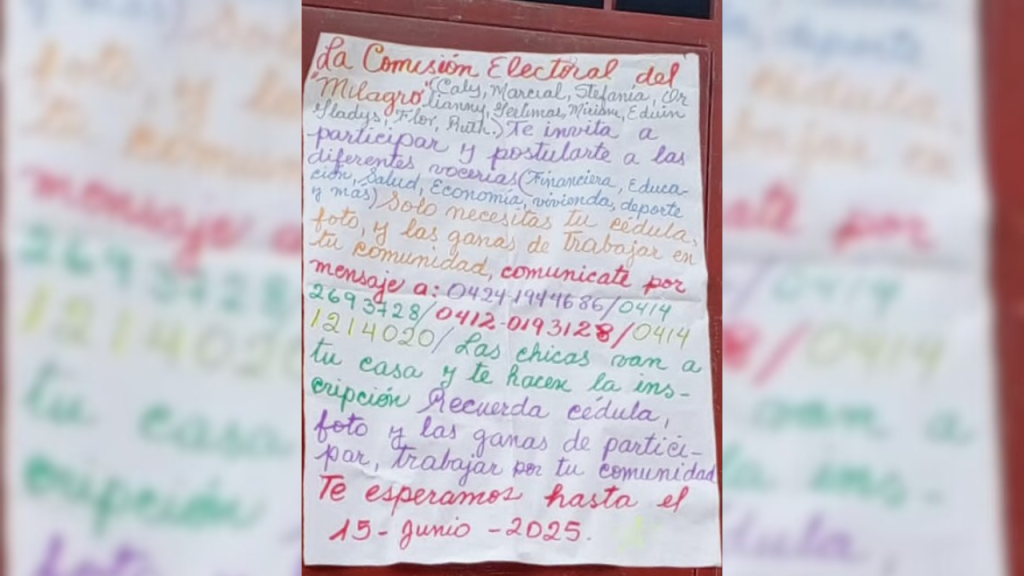 La Comisión Electoral del
"Milagro" (Caly, Marcial, Stefanía, Or
lianny, Yeilimar, Miriam, Eduin
Gladys, Flor, Ruth.) Te invita a
participar y postularte a las
diferentes vocerías (Financiera, Educa-
ción, Salud, Economía, vivienda, deporte
y más) Solo necesitas tu cédula,
foto, y las ganas de trabajar en
tu comunidad, comunicate por
mensaje a: 0424-1944686/0414
2693728/0412-0193128/0414
1214020/ Las chicas van a
tu casa y te hacen la ins-
cripción Recuerda cédula,
foto y las ganas de partici-
par, trabajar por tu comunidad
Te esperamos hasta el
15-Junio-2025.